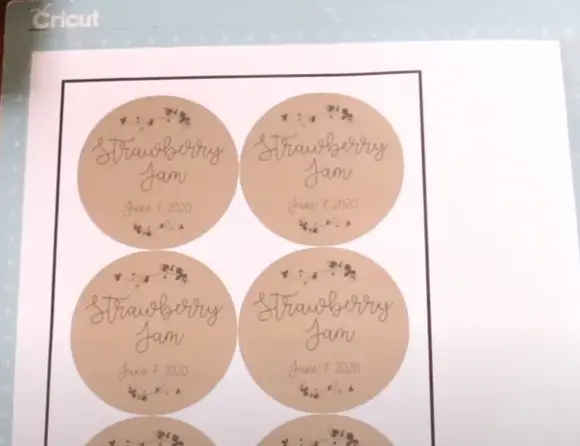 Cricut
Strawberry
Jam
June 7, 2020
Strawberry
Jam
June 7, 2020
Strawberry
Jam
June 7, 2020
Strawberry
Jam
June 7, 2020